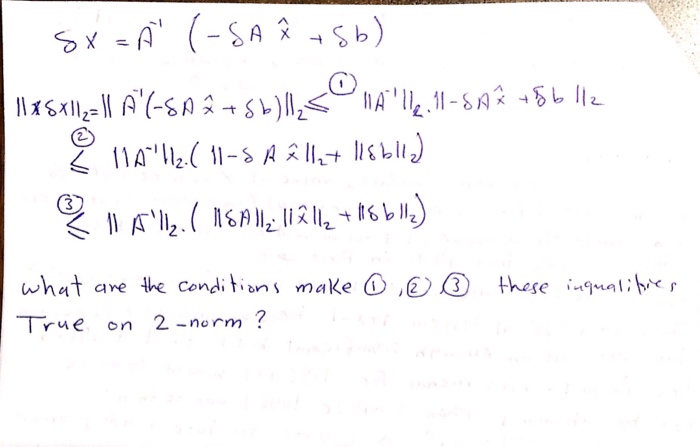 δx = A⁻¹ (-δA x̂ + δb)
||δx||₂ = || A⁻¹(-δA x̂ + δb)||₂ ≤ ① ||A⁻¹||₂ . ||-δAx̂ + δb||₂
② ≤ ||A⁻¹||₂ . ( ||-δ A x̂||₂ + ||δb||₂)
③ ≤ || A⁻¹||₂ . ( ||δA||₂ . ||x̂||₂ + ||δb||₂)
what are the conditions make ①, ② ③ these inqualities
True on 2-norm ?